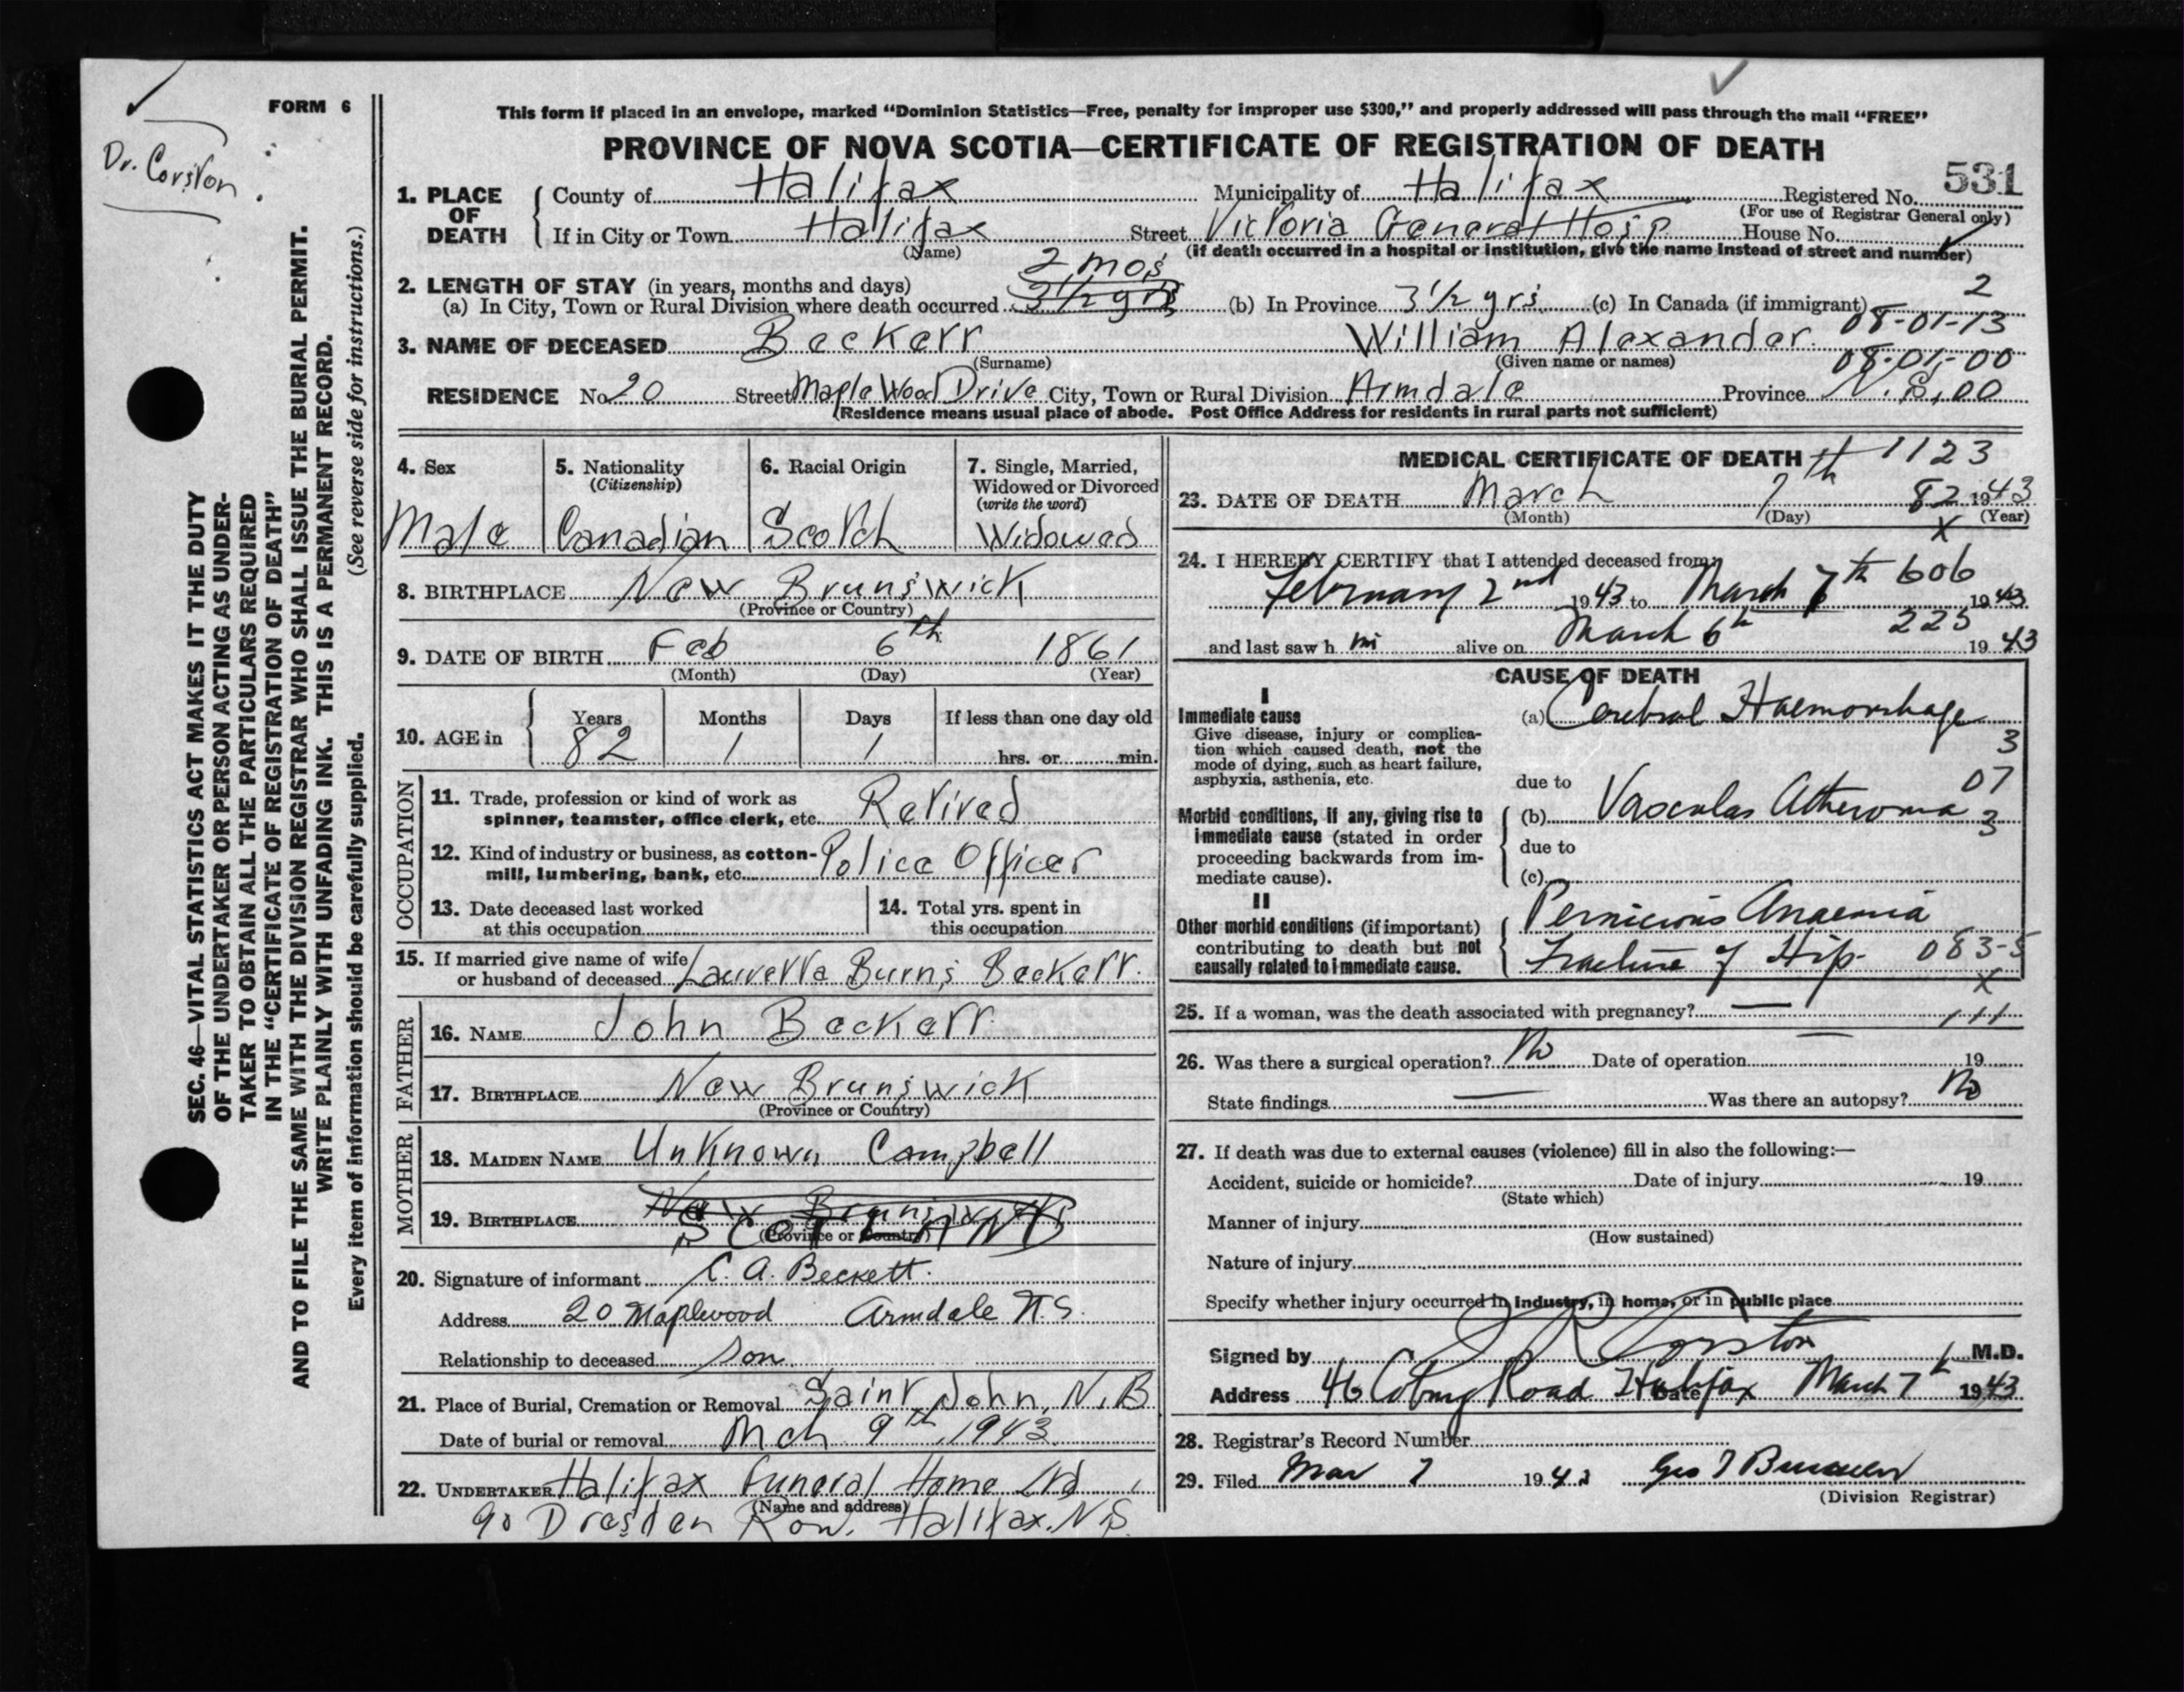 FORM 6
Dr. Corston
This form if placed in an envelope, marked “Dominion Statistics—Free, penalty for improper use $300,” and properly addressed will pass through the mail “FREE”
PROVINCE OF NOVA SCOTIA—CERTIFICATE OF REGISTRATION OF DEATH
531
1. PLACE OF DEATH County of Halifax Municipality of Halifax Registered No.
(For use of Registrar General only)
If in City or Town Halifax Street Victoria General Hosp House No.
(Name) (If death occurred in a hospital or institution, give the name instead of street and number)
2. LENGTH OF STAY (in years, months and days) 2 mos
(a) In City, Town or Rural Division where death occurred 3 1/2 yrs (b) In Province 3 1/2 yrs (c) In Canada (if immigrant) 2
08-01-13
3. NAME OF DECEASED Beckett William Alexander
(Surname) (Given name or names) 08-01-00
RESIDENCE No 20 Street Maple Wood Drive City, Town or Rural Division Armdale Province N.S. 00
(Residence means usual place of abode. Post Office Address for residents in rural parts not sufficient)
4. Sex 5. Nationality (Citizenship) 6. Racial Origin 7. Single, Married, Widowed or Divorced (write the word)
Male Canadian Scotch Widowed
8. BIRTHPLACE New Brunswick
(Province or Country)
9. DATE OF BIRTH Feb 6th 1861
(Month) (Day) (Year)
10. AGE in Years Months Days If less than one day old
82 1 1 hrs. or min.
OCCUPATION
11. Trade, profession or kind of work as
spinner, teamster, office clerk, etc. Retired
12. Kind of industry or business, as cotton-
mill, lumbering, bank, etc. Police Officer
13. Date deceased last worked 14. Total yrs. spent in
at this occupation this occupation
15. If married give name of wife
or husband of deceased Lauretta Burns Beckett
FATHER
16. NAME John Beckett
17. BIRTHPLACE New Brunswick
(Province or Country)
MOTHER
18. MAIDEN NAME Unknown Campbell
19. BIRTHPLACE New Brunswick SCOTLAND
(Province or Country)
20. Signature of informant C. A. Beckett
Address 20 Maplewood Armdale N.S.
Relationship to deceased Son
21. Place of Burial, Cremation or Removal Saint John, N.B
Date of burial or removal Mch 9th 1943
22. UNDERTAKER Halifax Funeral Home Ltd
(Name and address)
90 Dresden Row, Halifax, N.S.
MEDICAL CERTIFICATE OF DEATH 1123
23. DATE OF DEATH March 7th 82 1943
(Month) (Day) (Year)
x
24. I HEREBY CERTIFY that I attended deceased from
606
February 2nd 1943 to March 7th 1943
225
and last saw h im alive on March 6th 1943
CAUSE OF DEATH
I
Immediate cause (a) Cerebral Haemorrhage
Give disease, injury or complica-
tion which caused death, not the 3
mode of dying, such as heart failure,
asphyxia, asthenia, etc. due to 07
Morbid conditions, if any, giving rise to (b) Vascular Atheroma 3
immediate cause (stated in order due to
proceeding backwards from im-
mediate cause). (c)
II
Other morbid conditions (if important) Pernicious Anaemia
contributing to death but not
causally related to immediate cause. Fracture of Hip 083-5
x
25. If a woman, was the death associated with pregnancy? — 111
26. Was there a surgical operation? No Date of operation — 19
State findings — Was there an autopsy? No
27. If death was due to external causes (violence) fill in also the following:—
Accident, suicide or homicide? Date of injury 19
(State which)
Manner of injury
(How sustained)
Nature of injury
Specify whether injury occurred in industry, in home, or in public place
Signed by Corston M.D.
Address 46 Coburg Road Halifax Date March 7th 1943
28. Registrar's Record Number
29. Filed Mar 7 1943 Geo
(Division Registrar)
SEC. 46—VITAL STATISTICS ACT MAKES IT THE DUTY
OF THE UNDERTAKER OR PERSON ACTING AS UNDER-
TAKER TO OBTAIN ALL THE PARTICULARS REQUIRED
IN THE “CERTIFICATE OF REGISTRATION OF DEATH”
AND TO FILE THE SAME WITH THE DIVISION REGISTRAR WHO SHALL ISSUE THE BURIAL PERMIT.
WRITE PLAINLY WITH UNFADING INK. THIS IS A PERMANENT RECORD.
Every item of information should be carefully supplied. (See reverse side for instructions.)